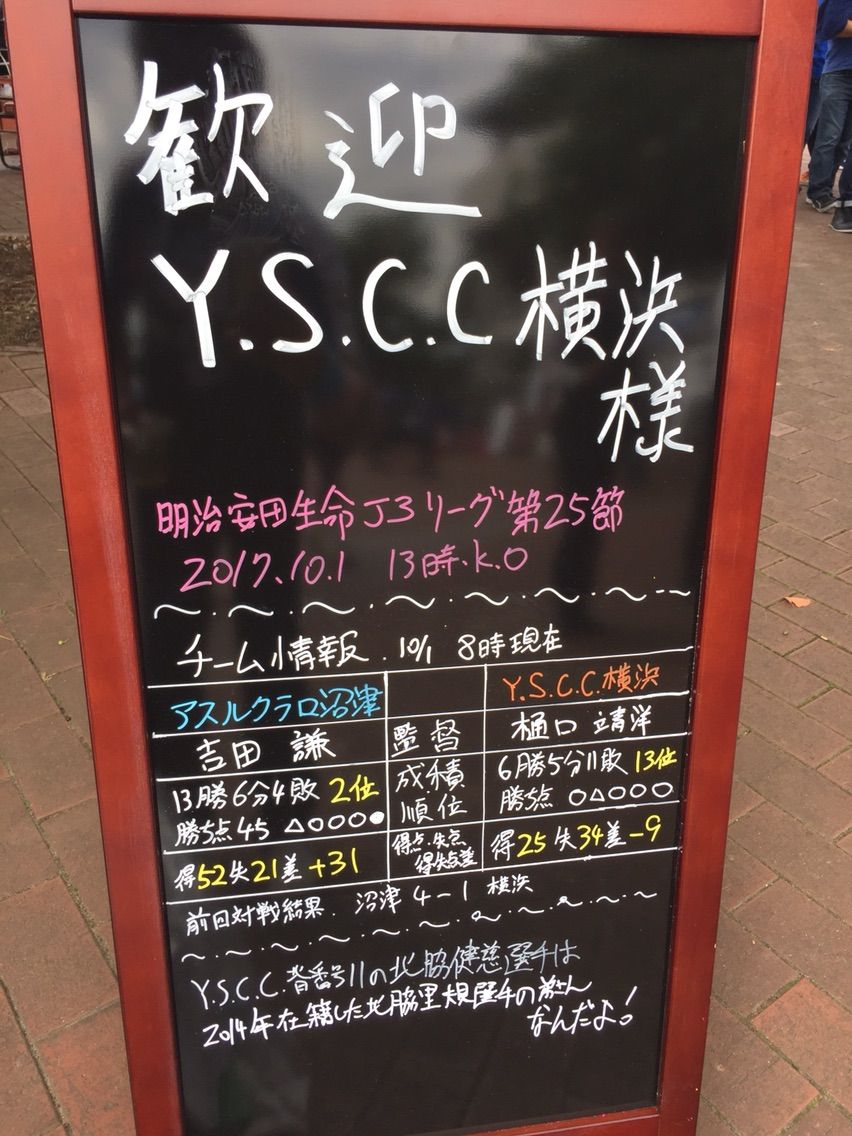 歓迎
Y.S.C.C横浜
様
明治安田生命J3リーグ第25節
2017.10.1 13時.K.O
チーム情報.10/1 8時現在
アスルクラロ沼津 Y.S.C.C.横浜
吉田 謙 監督 樋口 靖洋
13勝6分4敗 2位 成積 6勝5分11敗 13位
勝ち点45 △○○○● 順位 勝ち点 ○△○○○
得52失21差+31 得点・失点 得25失34差-9
得失点差
前回対戦結果. 沼津 4-1 横浜
Y.S.C.C.背番号11の北脇健慈選手は
2014年在籍した北脇里規選手の弟さん
なんだよ!